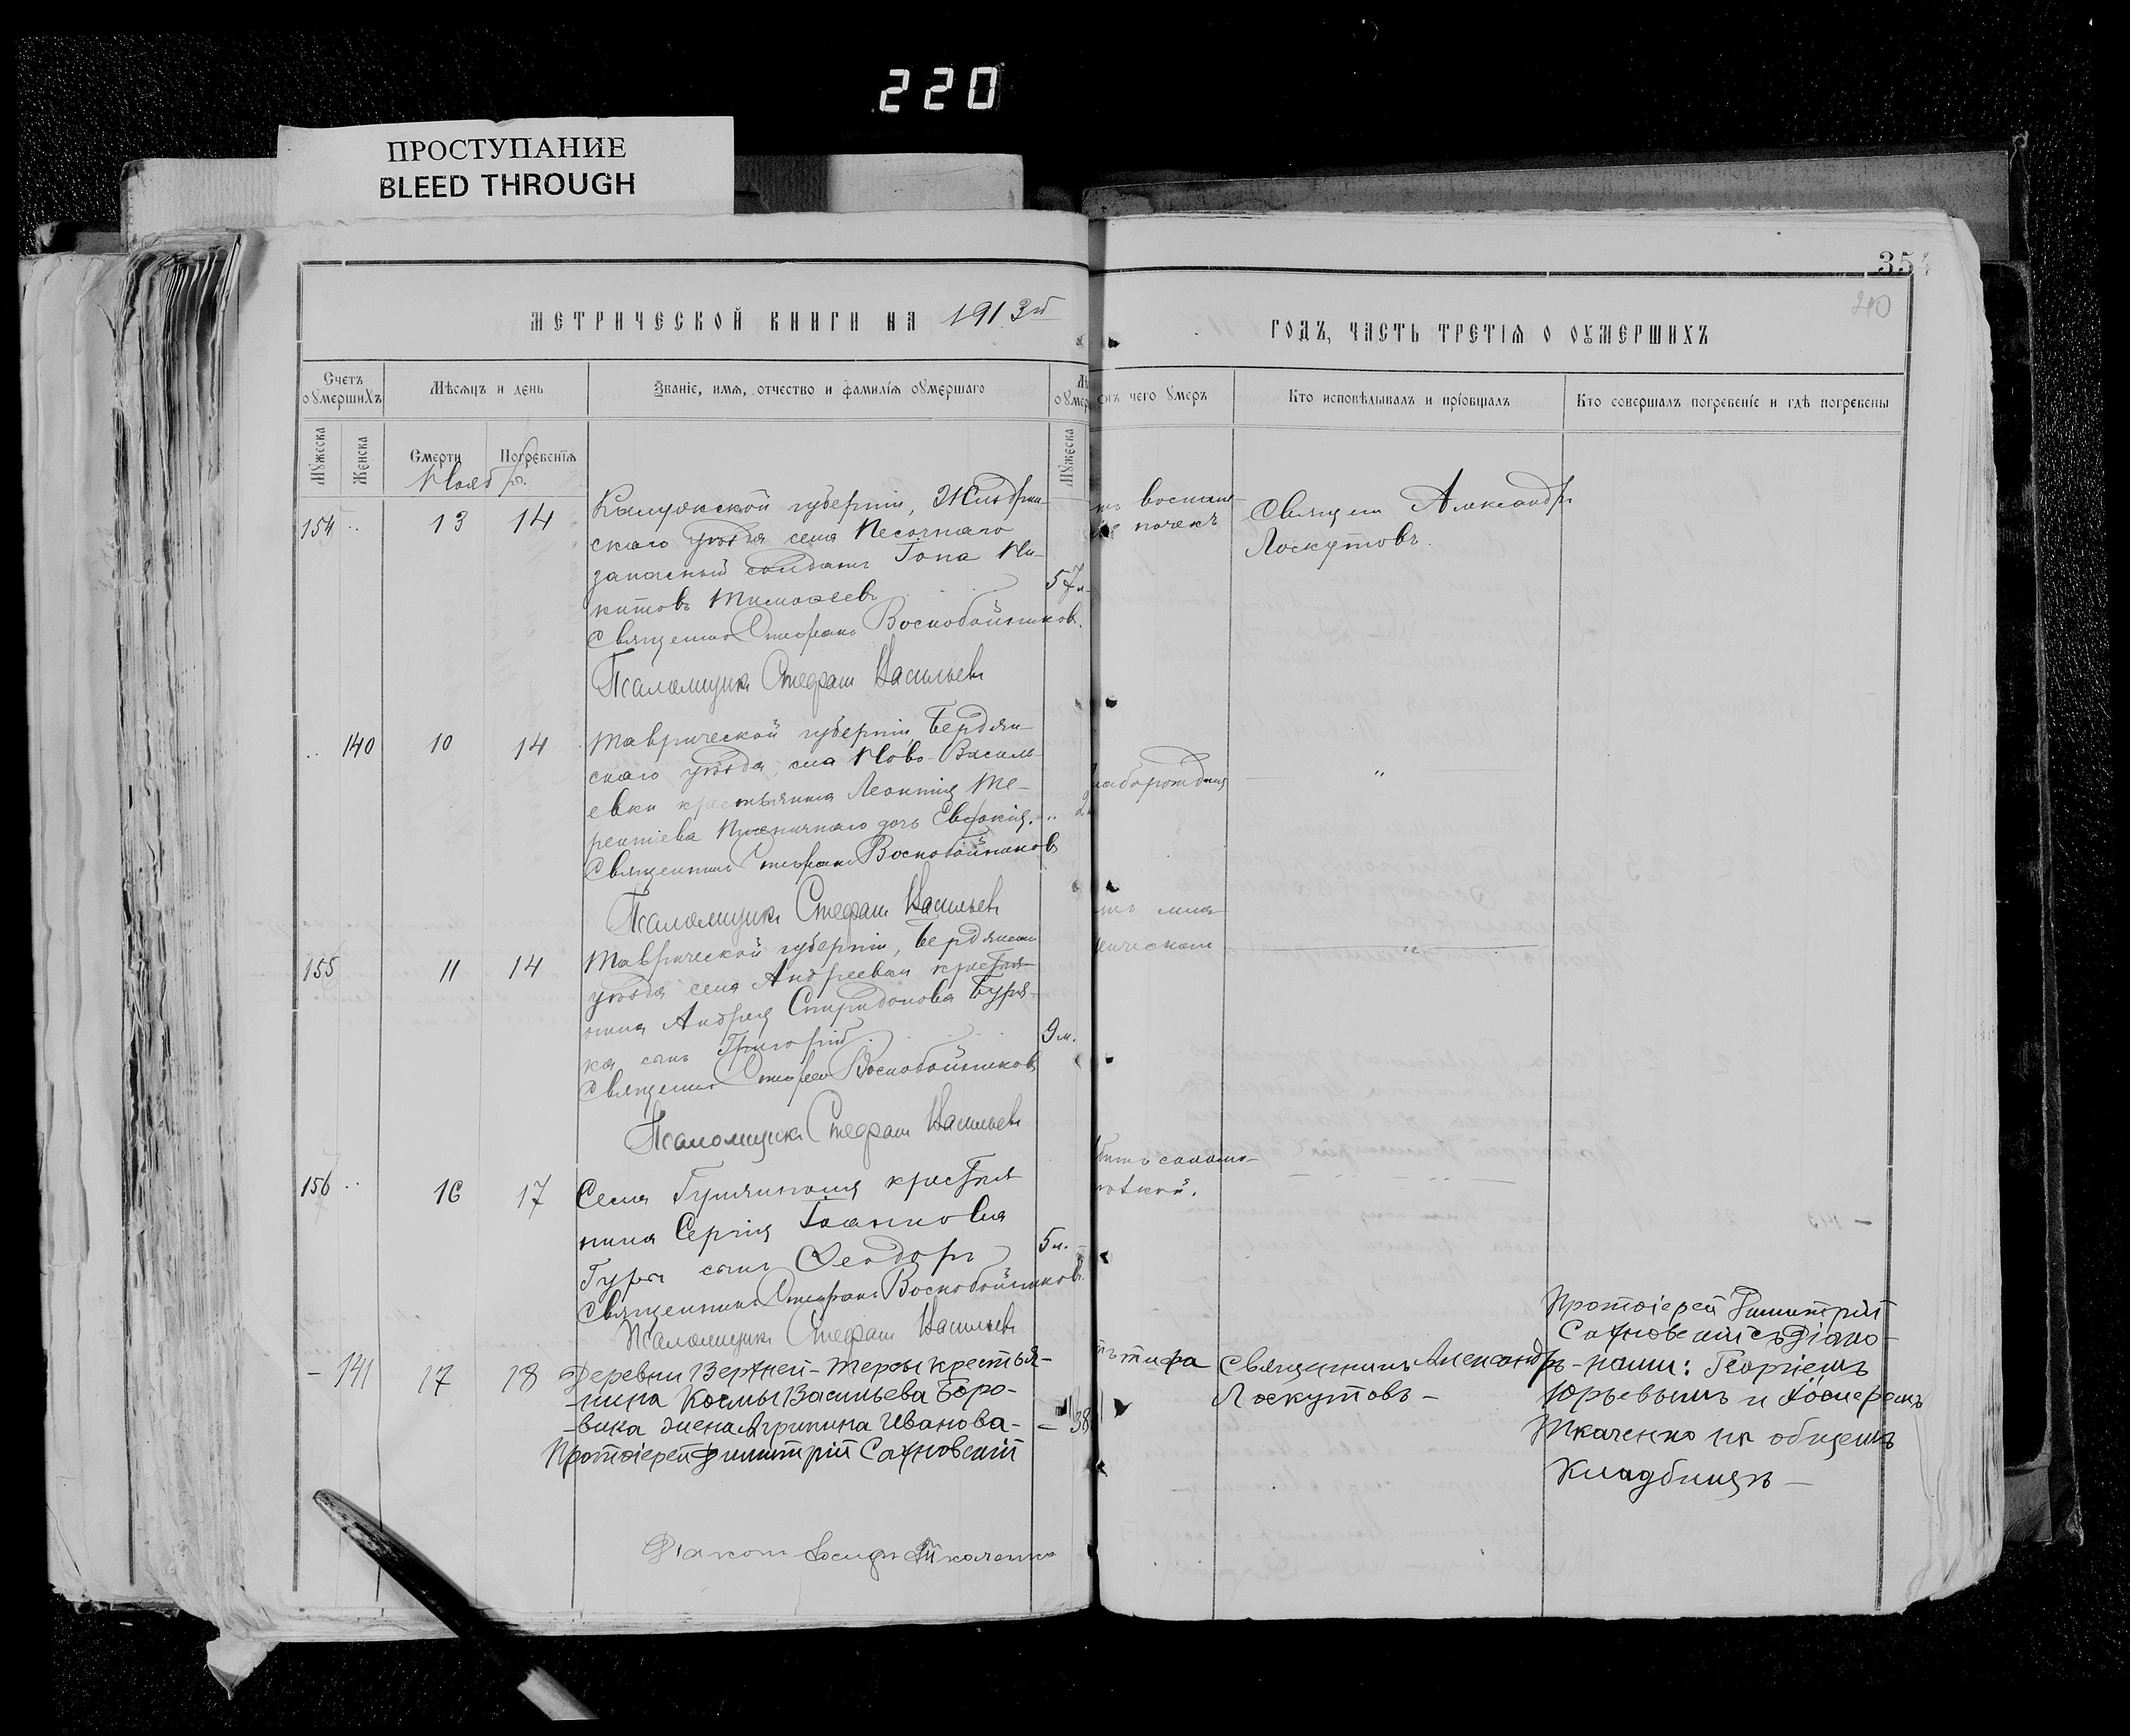 220
ПРОСТУПАНИЕ
BLEED THROUGH
354
МЕТРИЧЕСКОЙ КНИГИ НА 1913й
ГОДЪ, ЧАСТЬ ТРЕТІЯ О ОУМЕРШИХЪ
Счетъ оумершихъ
Мѣсяцъ и день
Званіе, имя, отчество и фамилія оумершаго
отъ чего умеръ
Кто исповѣдывалъ и пріобщалъ
Кто совершалъ погребеніе и гдѣ погребены
Мужеска
Женска
Смерти
Погребенія
Мужеска
Нояб
154 13 14
Калужской губерніи, Жиздрин-
скаго уѣзда села Песочнаго
запасный солдатъ Іона Ни-
китовъ Тимофеевъ
57
Священникъ Стефанъ Воскобойниковъ.
Псаломщикъ Стефанъ Васильевъ
почекъ
Священ Александръ
Лоскутовъ.
140 10 14
Таврической губерніи, Бердян-
скаго уѣзда, села Ново-Василь-
евки крестьянина Леонтія Те-
рентіева дочь Евдокія.
Священникъ Стефанъ Воскобойниковъ
Псаломщикъ Стефанъ Васильевъ
155 11 14
Таврической губерніи, Бердянскаго
уѣзда села Андреевки крестья-
нина Андрея Спиридонова Буря-
ка сынъ Григорій
9 м.
Священникъ Стефанъ Воскобойниковъ
Псаломщикъ Стефанъ Васильевъ
156 16 17
Села Гуляйполя крестья-
нина Сергія Іоаннова
Гура сынъ Ѳеодоръ
5 м.
Священникъ Стефанъ Воскобойниковъ
Псаломщикъ Стефанъ Васильевъ
141 17 18
Деревни Верхней-Терсы крестья-
-нина Космы Васильева Боро-
-вика жена Агрипина Иванова-
38
Протоіерей Димитрій Сахновскій
Діаконъ Іосифъ Ткаченко
тифа
Священникъ Александръ
Лоскутовъ-
Протоіерей Димитрій
Сахновскій съ діако-
-нами: Георгіемъ
Юрьевымъ и Іосифомъ
Ткаченко на общемъ
Кладбищѣ-